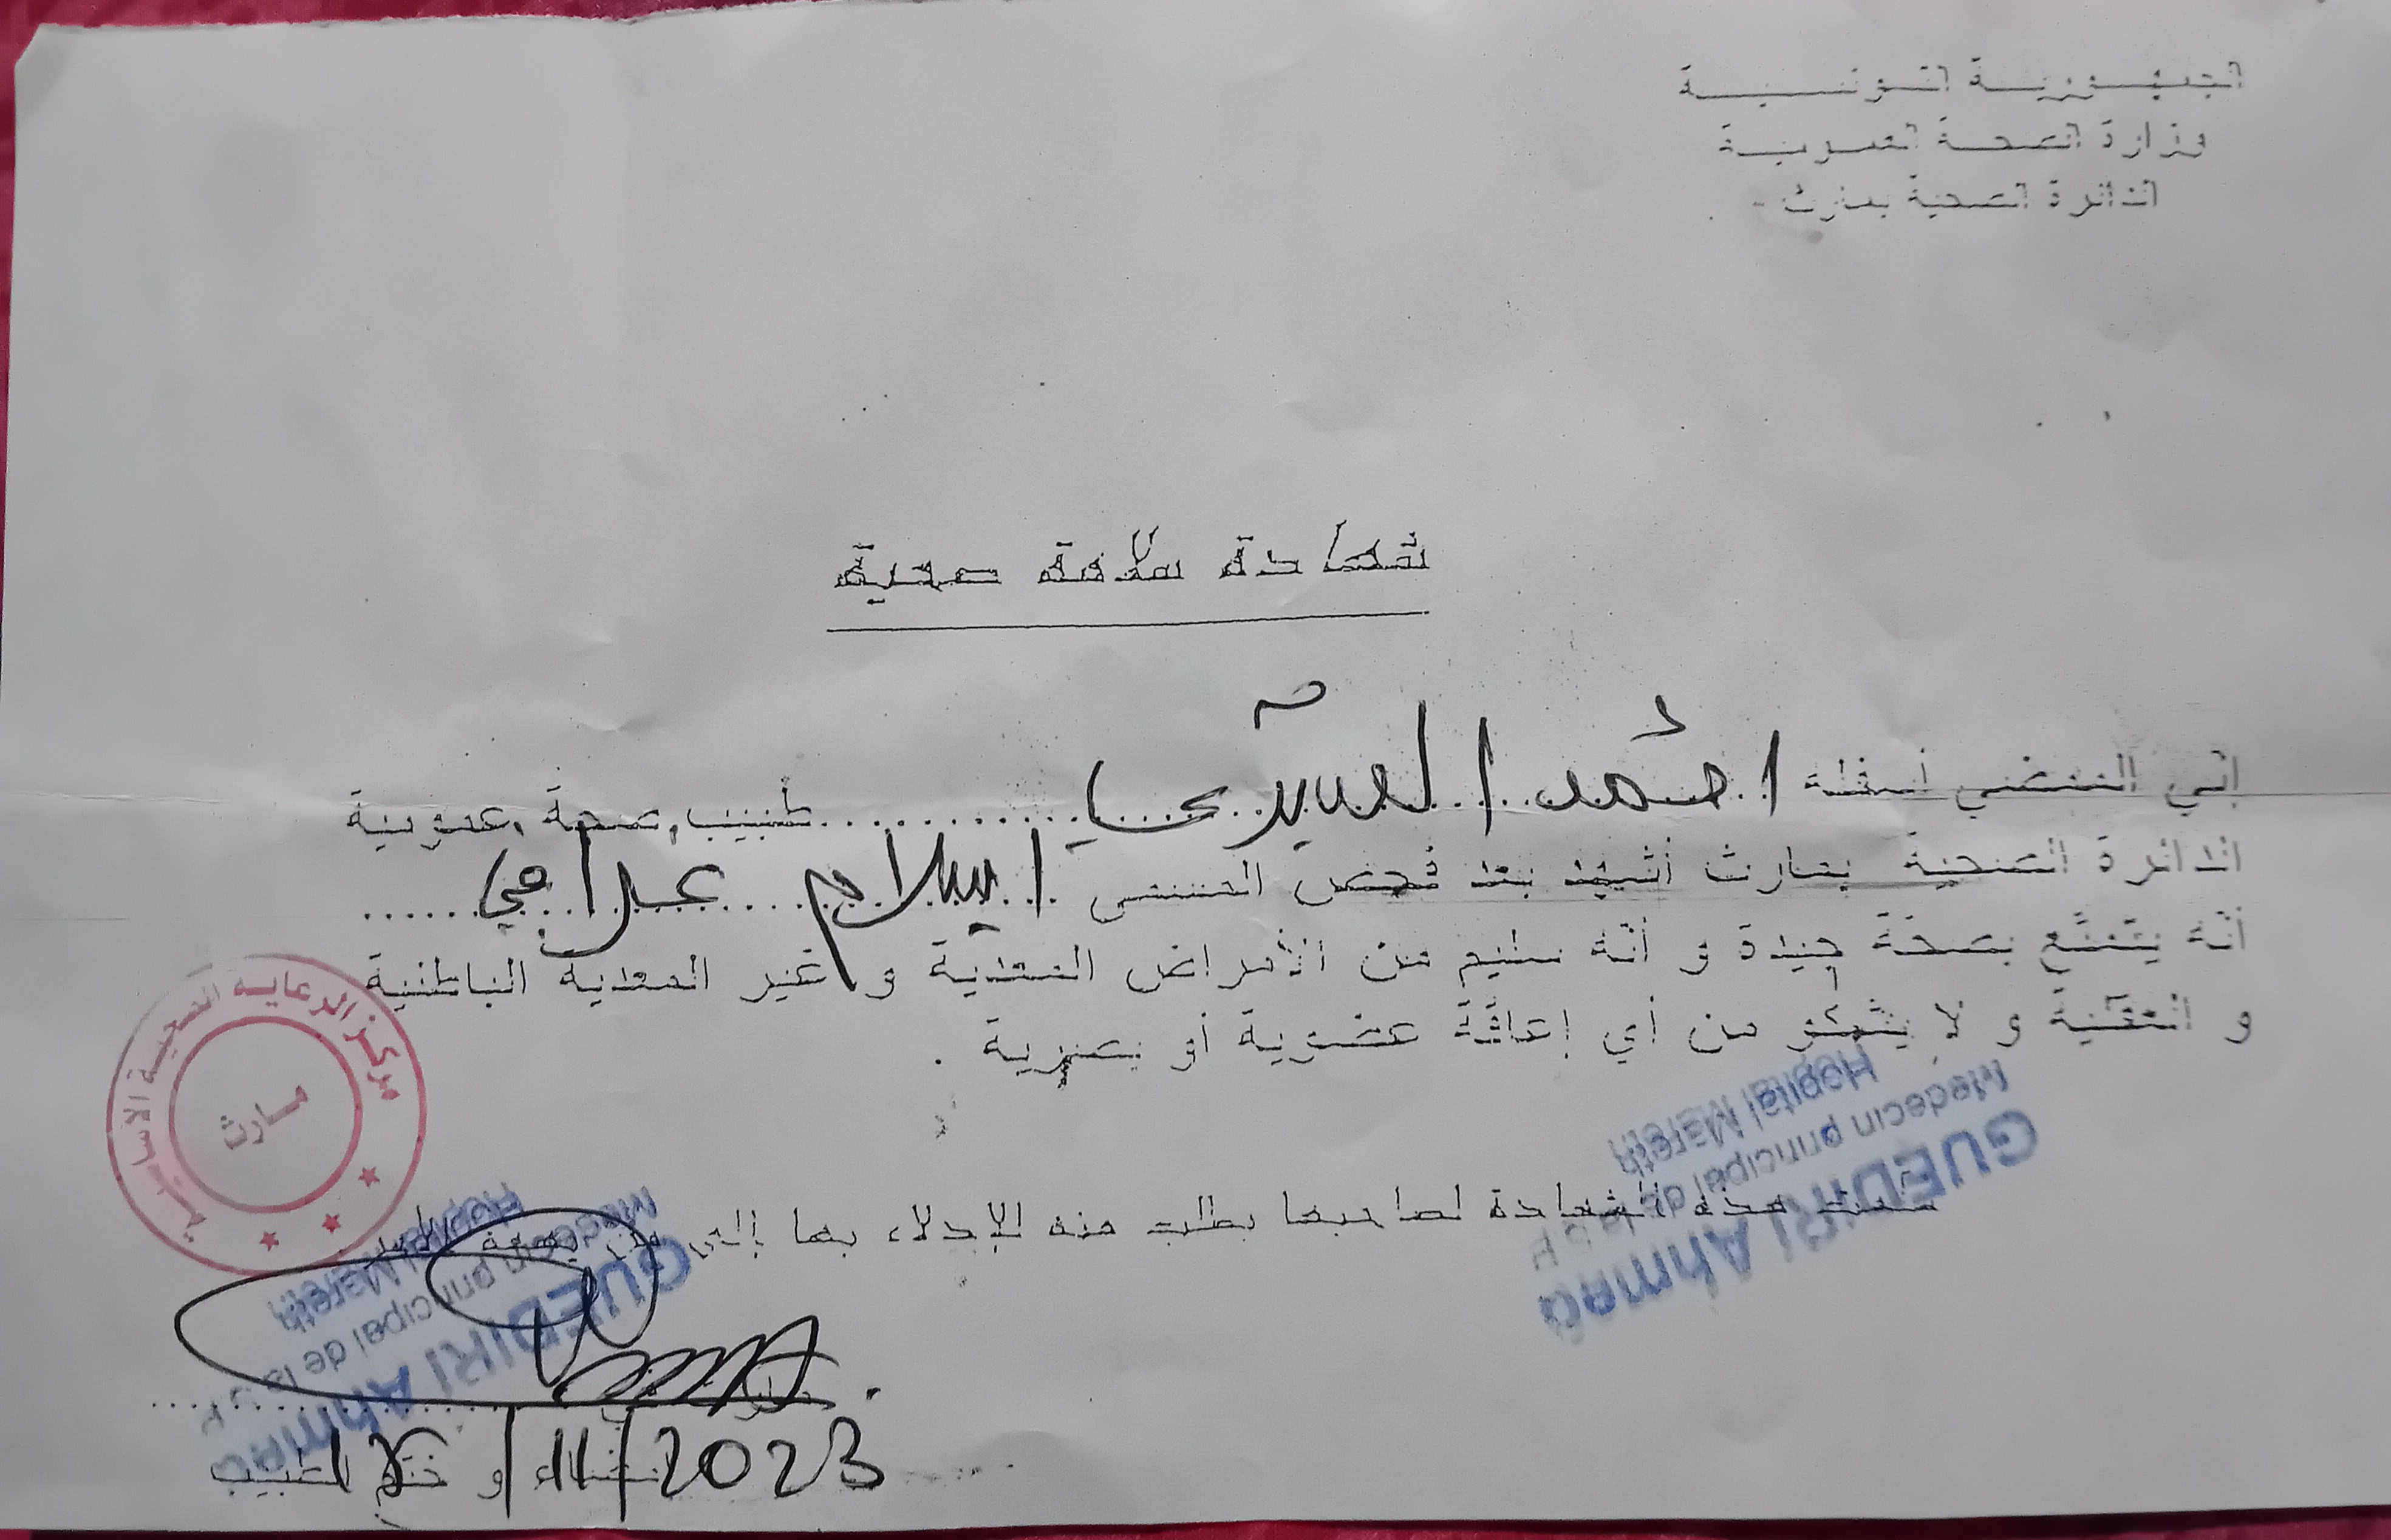 الجمهورية التونسية
وزارة الصحة العمومية
الدائرة الصحية بمارث -
شهادة سلامة صحية
إني الممضي أسفله احمد ... طبيب صحة عمومية
الدائرة الصحية بمارث أشهد بعد فحص المسمى اسلام عرامي
أنه يتمتع بصحة جيدة و أنه سليم من الأمراض المعدية و غير المعدية الباطنية
و العقلية و لا يشكو من أي إعاقة عضوية أو بصرية .
سلمت هذه الشهادة لصاحبها بطلب منه للإدلاء بها إلى من يهمه الأمر
إمضاء و ختم الطبيب
11/2023
مركز الرعاية الصحية الأساسية
مارث
GUEDIRI Ahmed
Medecin principal de la S.P
Hopital Mareth
GUEDIRI Ahmed
Medecin principal de la S.P
Hopital Mareth